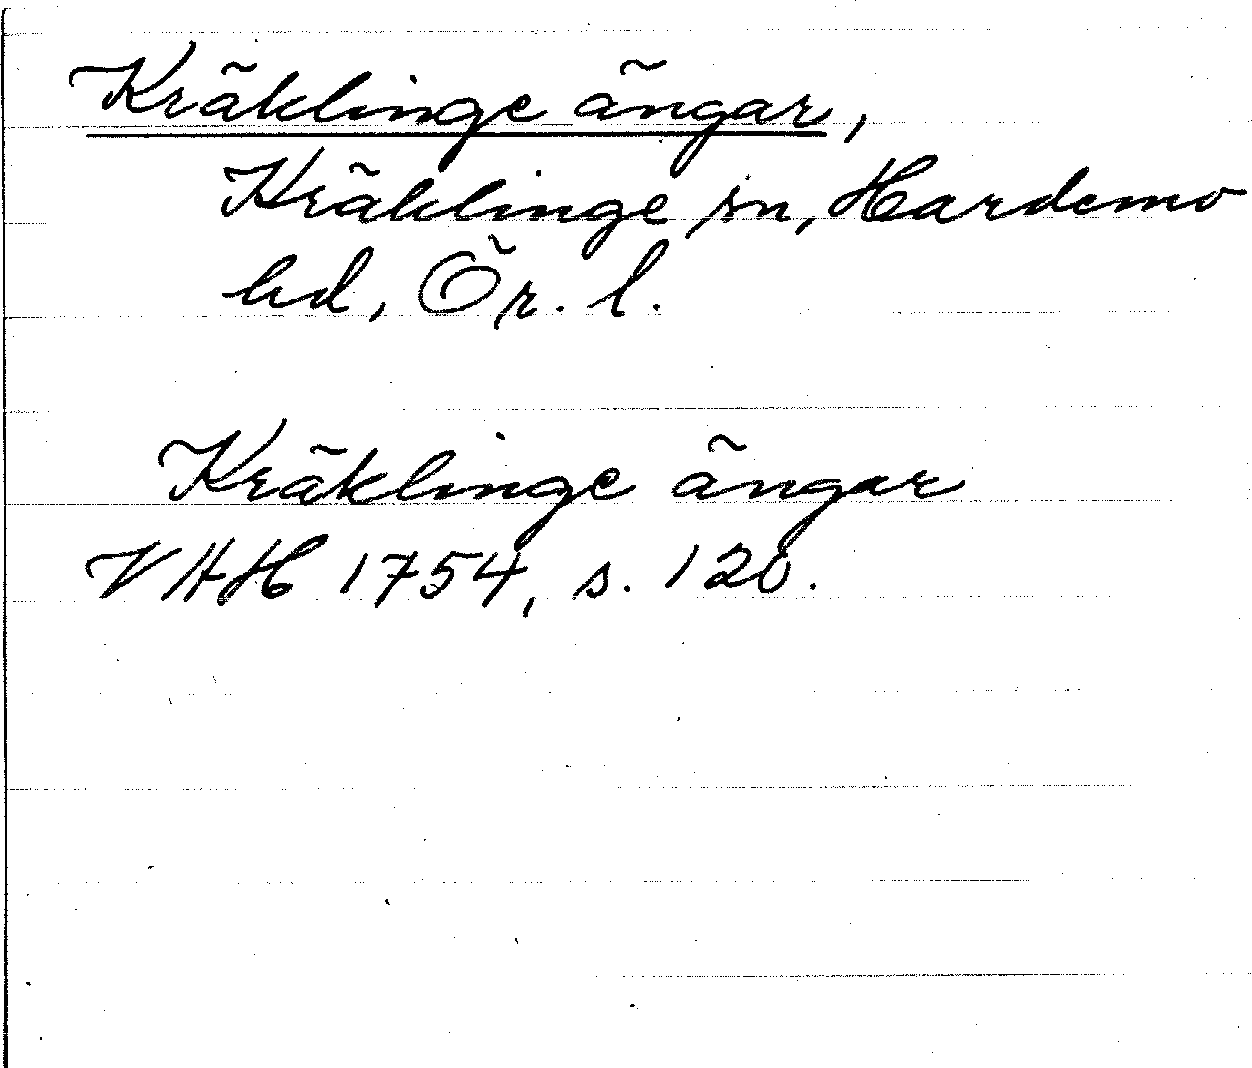 Kräklinge ängar,
Kräklinge sn, Hardemo
hd, Ör. l.
Kräklinge ängar
VHH 1754, s. 120.